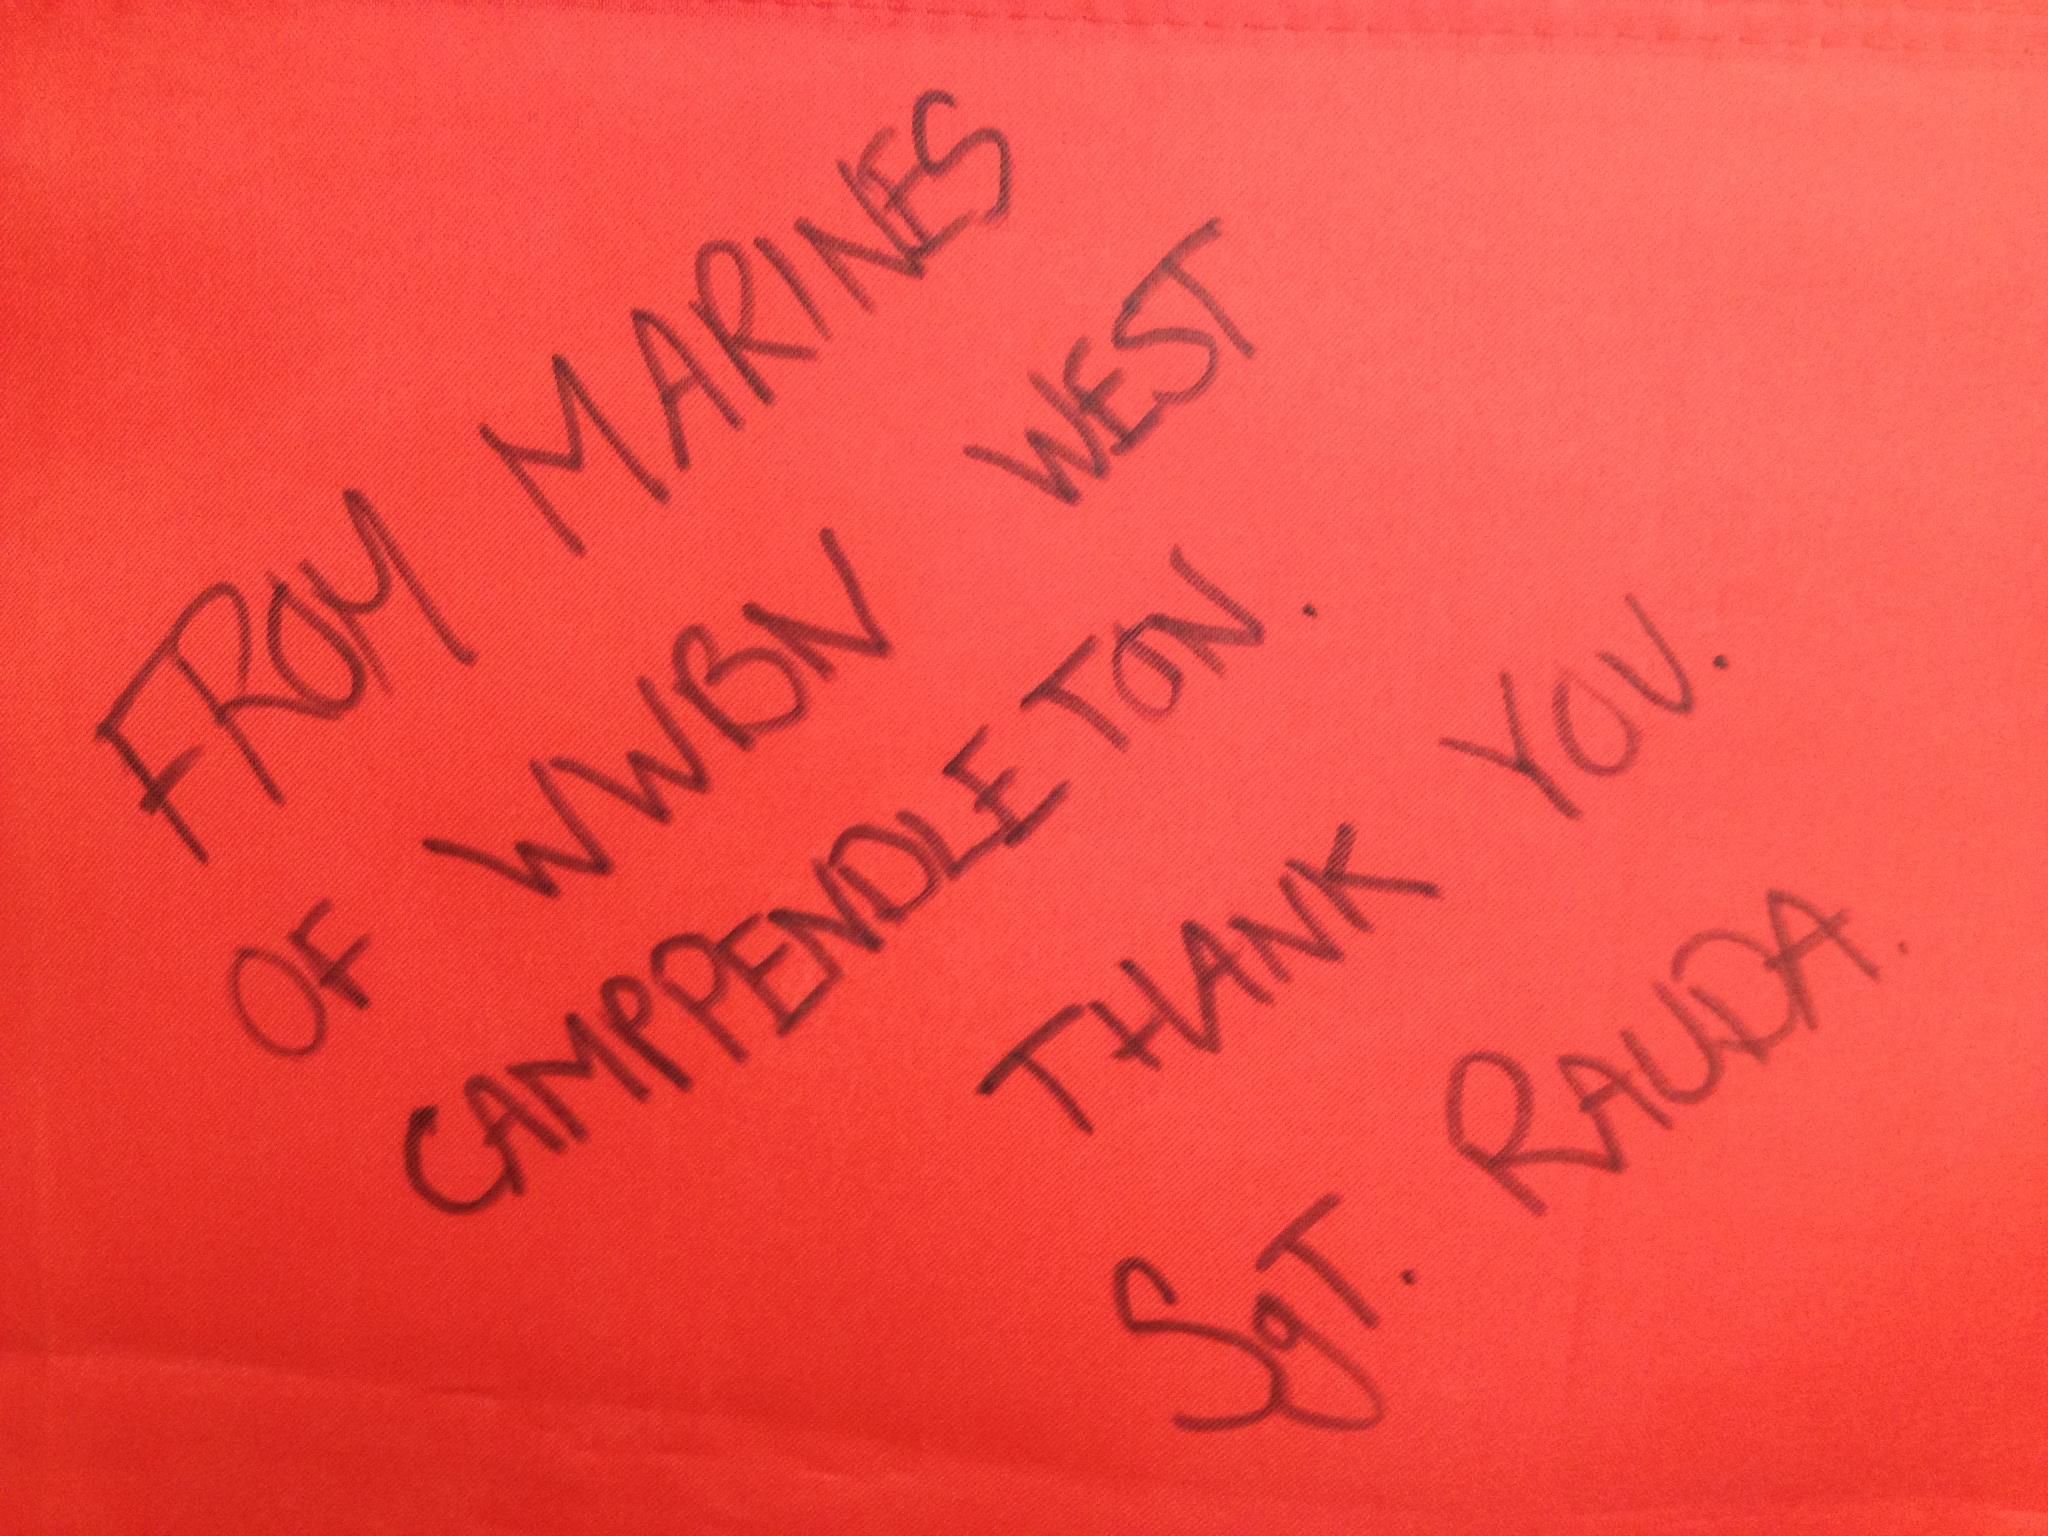 FROM MARINES
OF WWBN WEST
CAMPPENDLETON.
THANK YOU.
SgT. RAUDA.